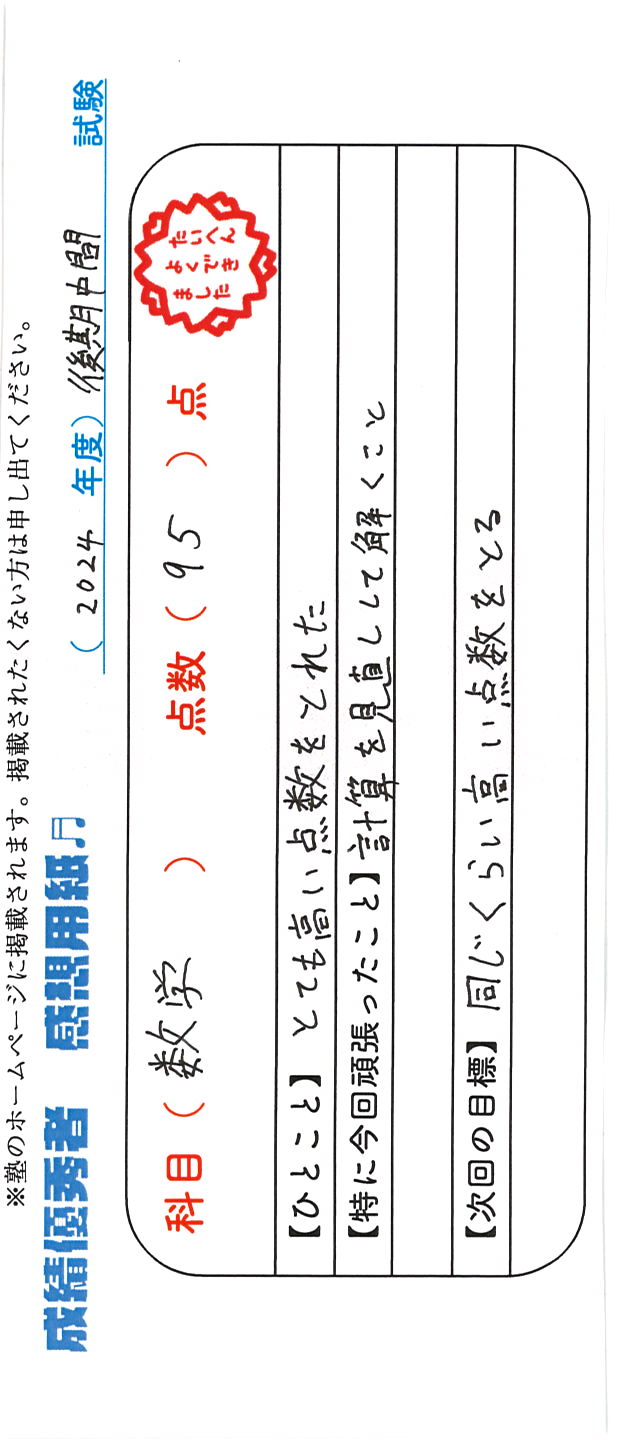 ※塾のホームページに掲載されます。掲載されたくない方は申し出てください。
成績優秀者 感想用紙♬ （2024 年度）後期中間 試験
科目（数学） 点数（95）点
たいへん
よくでき
ました
【ひとこと】とても高い点数をとれた
【特に今回頑張ったこと】計算を見直しして解くこと
【次回の目標】同じくらい高い点数をとる